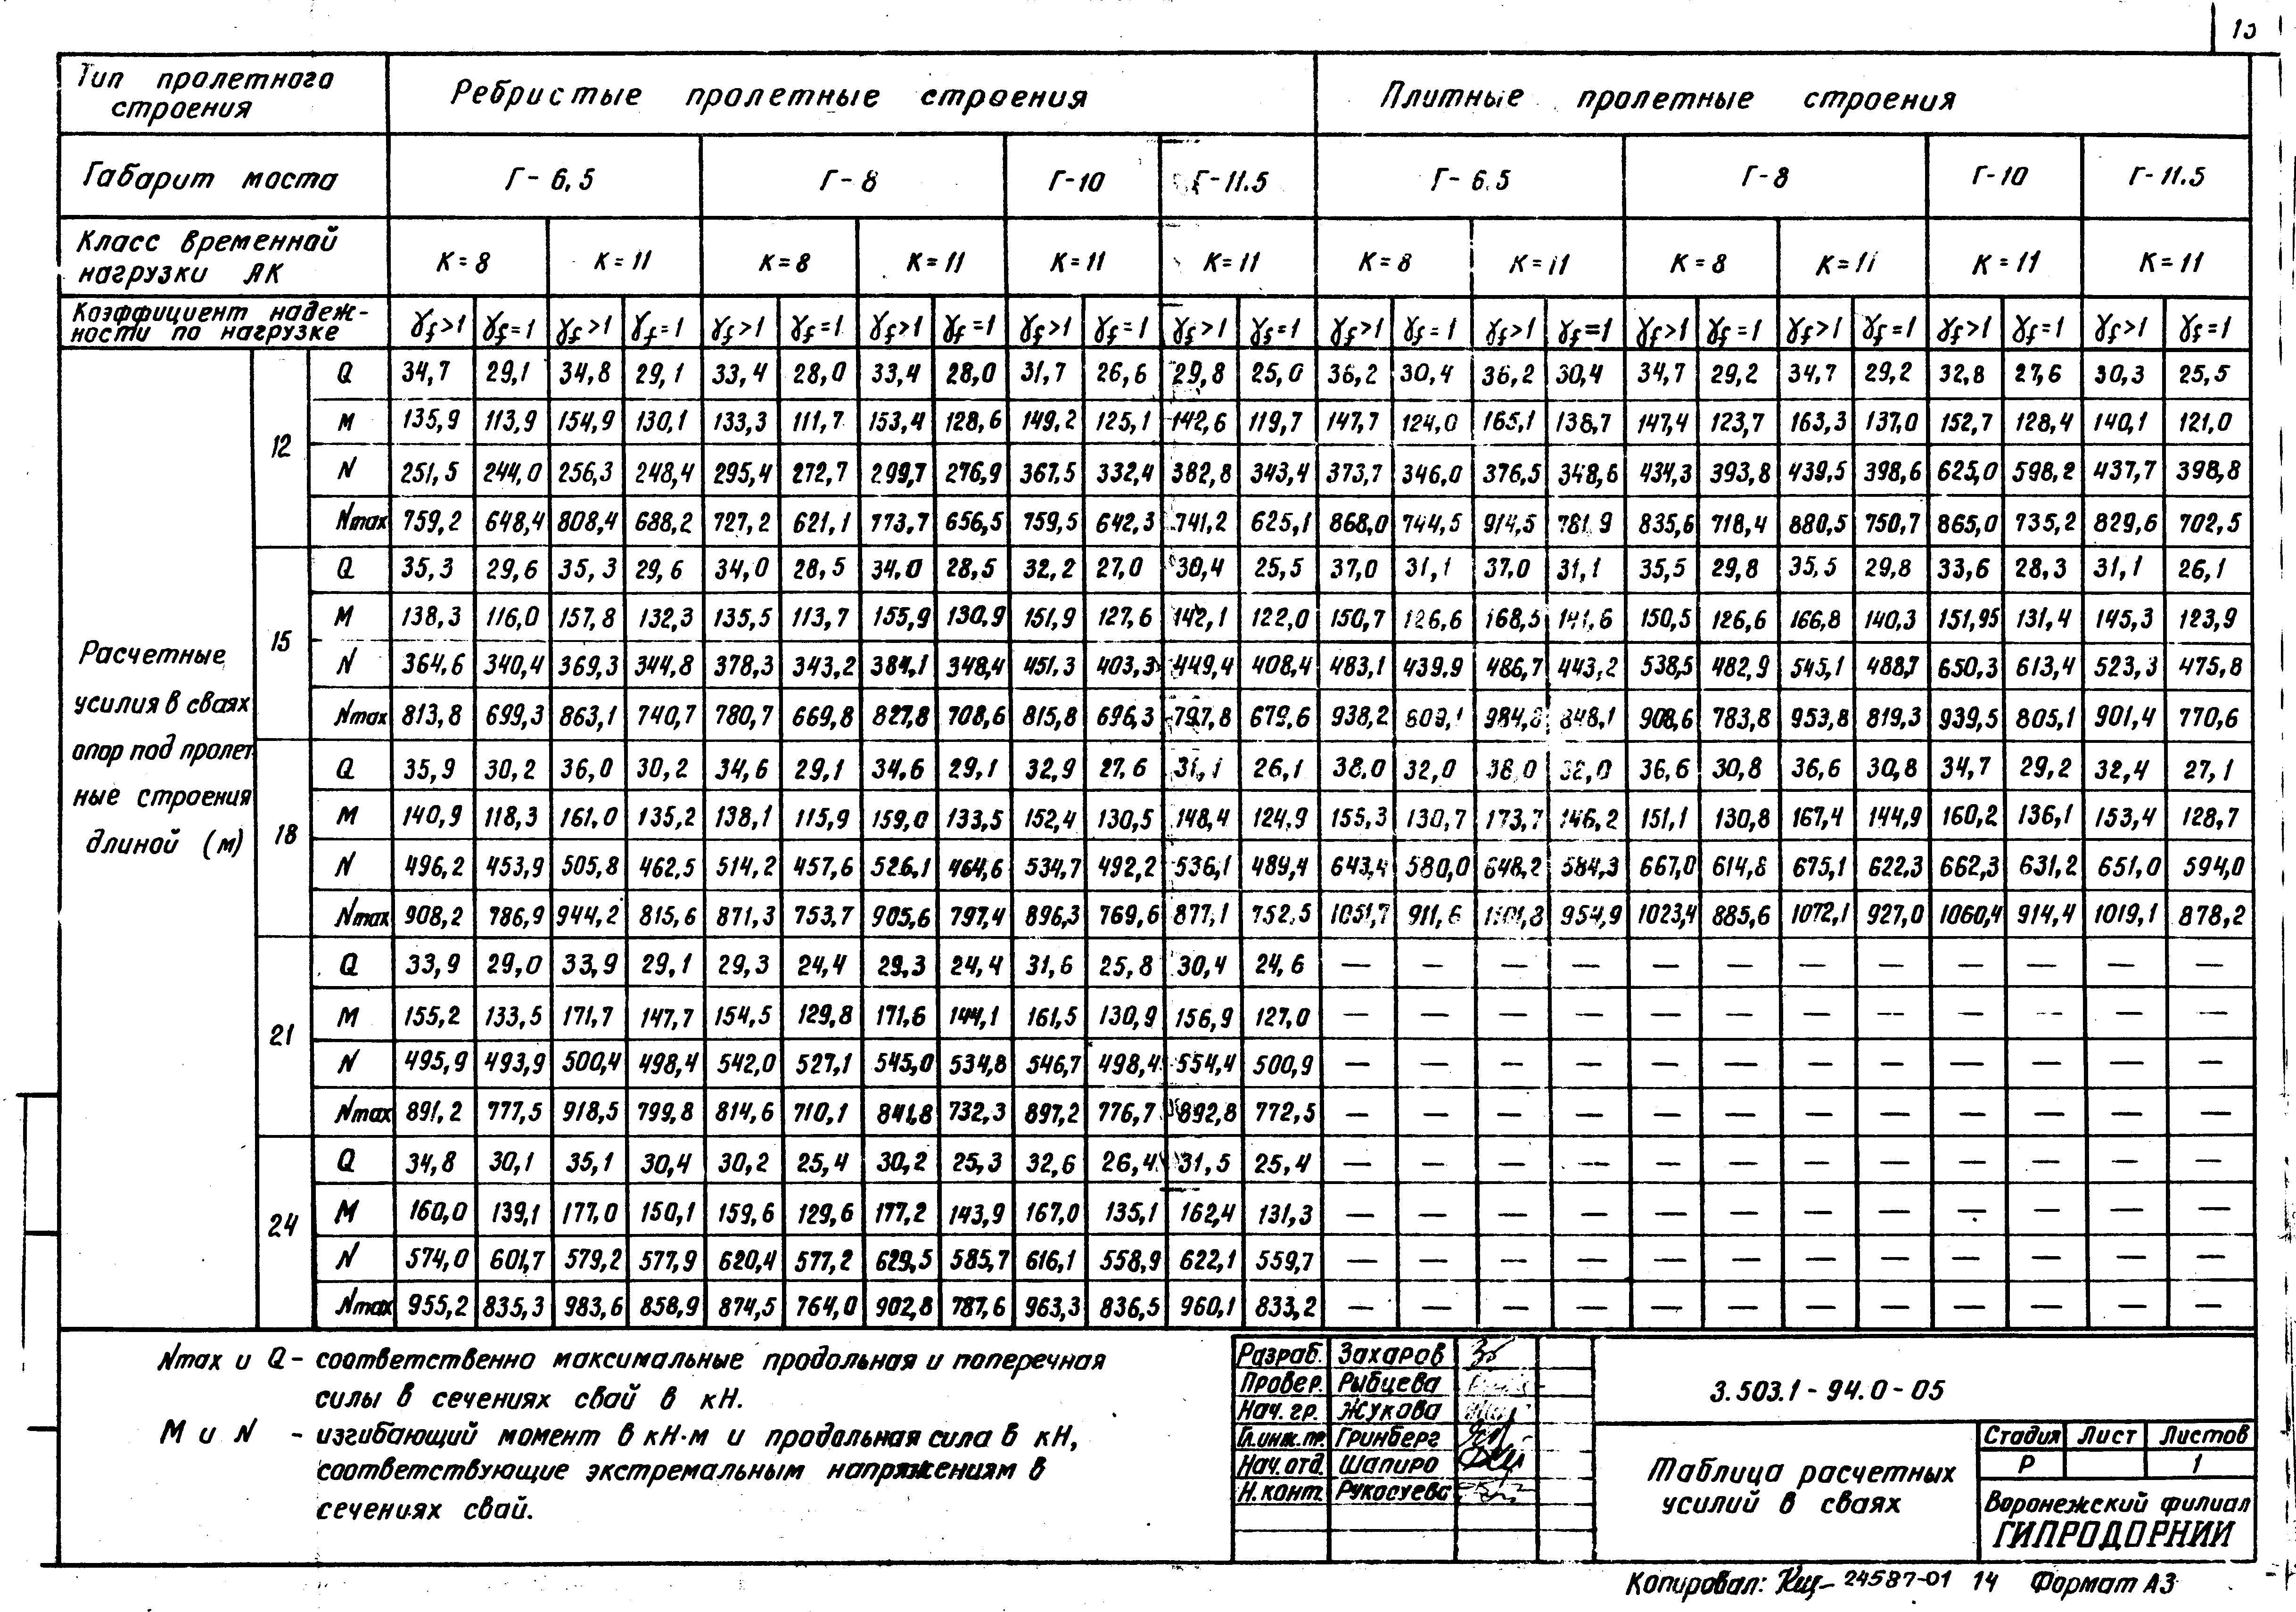 Тип пролетного строения | Ребристые пролетные строения | Плитные пролетные строения
Габарит моста | Г-6,5 | Г-8 | Г-10 | Г-11.5 | Г-6.5 | Г-8 | Г-10 | Г-11.5
Класс временной нагрузки АК | К=8 | К=11 | К=8 | К=11 | К=11 | К=11 | К=8 | К=11 | К=8 | К=11 | К=11 | К=11
Коэффициент надежности по нагрузке | γf>1 | γf=1 | γf>1 | γf=1 | γf>1 | γf=1 | γf>1 | γf=1 | γf>1 | γf=1 | γf>1 | γf=1 | γf>1 | γf=1 | γf>1 | γf=1 | γf>1 | γf=1 | γf>1 | γf=1 | γf>1 | γf=1 | γf>1 | γf=1
Расчетные
усилия в сваях
опор под пролет
ные строения
длиной (м)
12
Q 34,7 29,1 34,8 29,1 33,4 28,0 33,4 28,0 31,7 26,6 29,8 25,0 36,2 30,4 36,2 30,4 34,7 29,2 34,7 29,2 32,8 27,6 30,3 25,5
M 135,9 113,9 154,9 130,1 133,3 111,7 153,4 128,6 149,2 125,1 142,6 119,7 147,7 124,0 165,1 138,7 147,4 123,7 163,3 137,0 152,7 128,4 140,1 121,0
N 251,5 244,0 256,3 248,4 295,4 272,7 299,7 276,9 367,5 332,4 382,8 343,4 373,7 346,0 376,5 348,6 434,3 393,8 439,5 398,6 625,0 598,2 437,7 398,8
Nmax 759,2 648,4 808,4 688,2 727,2 621,1 773,7 656,5 759,5 642,3 741,2 625,1 868,0 744,5 914,5 781,9 835,6 718,4 880,5 750,7 865,0 735,2 829,6 702,5
15
Q 35,3 29,6 35,3 29,6 34,0 28,5 34,0 28,5 32,2 27,0 30,4 25,5 37,0 31,1 37,0 31,1 35,5 29,8 35,5 29,8 33,6 28,3 31,1 26,1
M 138,3 116,0 157,8 132,3 135,5 113,7 155,9 130,9 151,9 127,6 142,1 122,0 150,7 126,6 168,5 141,6 150,5 126,6 166,8 140,3 151,95 131,4 145,3 123,9
N 364,6 340,4 369,3 344,8 378,3 343,2 384,1 348,4 451,3 403,3 449,4 408,4 483,1 439,9 486,7 443,2 538,5 482,9 545,1 488,7 650,3 613,4 523,3 475,8
Nmax 813,8 699,3 863,1 740,7 780,7 669,8 827,8 708,6 815,8 696,3 797,8 679,6 938,2 809,1 984,8 848,1 908,6 783,8 953,8 819,3 939,5 805,1 901,4 770,6
18
Q 35,9 30,2 36,0 30,2 34,6 29,1 34,6 29,1 32,9 27,6 31,1 26,1 38,0 32,0 38,0 32,0 36,6 30,8 36,6 30,8 34,7 29,2 32,4 27,1
M 140,9 118,3 161,0 135,2 138,1 115,9 159,0 133,5 152,4 130,5 148,4 124,9 155,3 130,7 173,7 146,2 151,1 130,8 167,4 144,9 160,2 136,1 153,4 128,7
N 496,2 453,9 505,8 462,5 514,2 457,6 526,1 464,6 534,7 492,2 536,1 489,4 643,4 580,0 648,2 584,3 667,0 614,8 675,1 622,3 662,3 631,2 651,0 594,0
Nmax 908,2 786,9 944,2 815,6 871,3 753,7 905,6 797,4 896,3 769,6 877,1 752,5 1051,7 911,6 1101,8 954,9 1023,4 885,6 1072,1 927,0 1060,4 914,4 1019,1 878,2
21
Q 33,9 29,0 33,9 29,1 29,3 24,4 29,3 24,4 31,6 25,8 30,4 24,6 — — — — — — — — — — — —
M 155,2 133,5 171,7 147,7 154,5 129,8 171,6 144,1 161,5 130,9 156,9 127,0 — — — — — — — — — — — —
N 495,9 493,9 500,4 498,4 542,0 527,1 545,0 534,8 546,7 498,4 554,4 500,9 — — — — — — — — — — — —
Nmax 891,2 777,5 918,5 799,8 814,6 710,1 841,8 732,3 897,2 776,7 892,8 772,5 — — — — — — — — — — — —
24
Q 34,8 30,1 35,1 30,4 30,2 25,4 30,2 25,3 32,6 26,4 31,5 25,4 — — — — — — — — — — — —
M 160,0 139,1 177,0 150,1 159,6 129,6 177,2 143,9 167,0 135,1 162,4 131,3 — — — — — — — — — — — —
N 574,0 601,7 579,2 577,9 620,4 577,2 629,5 585,7 616,1 558,9 622,1 559,7 — — — — — — — — — — — —
Nmax 955,2 835,3 983,6 858,9 874,5 764,0 902,8 787,6 963,3 836,5 960,1 833,2 — — — — — — — — — — — —
Nmax и Q - соответственно максимальные продольная и поперечная
силы в сечениях свай в кН.
М и N - изгибающий момент в кН·м и продольная сила в кН,
соответствующие экстремальным напряжениям в
сечениях свай.
Разраб. Захаров
Провер. Рыбцева
Нач. гр. Жукова
Гл.инж.пр. Гринберг
Нач. отд. Шапиро
Н. конт. Рукосуева
3.503.1-94.0-05
Таблица расчетных
усилий в сваях
Стадия Лист Листов
Р 1
Воронежский филиал
ГИПРОДОРНИИ
Копировал: 24587-01 14 Формат А3